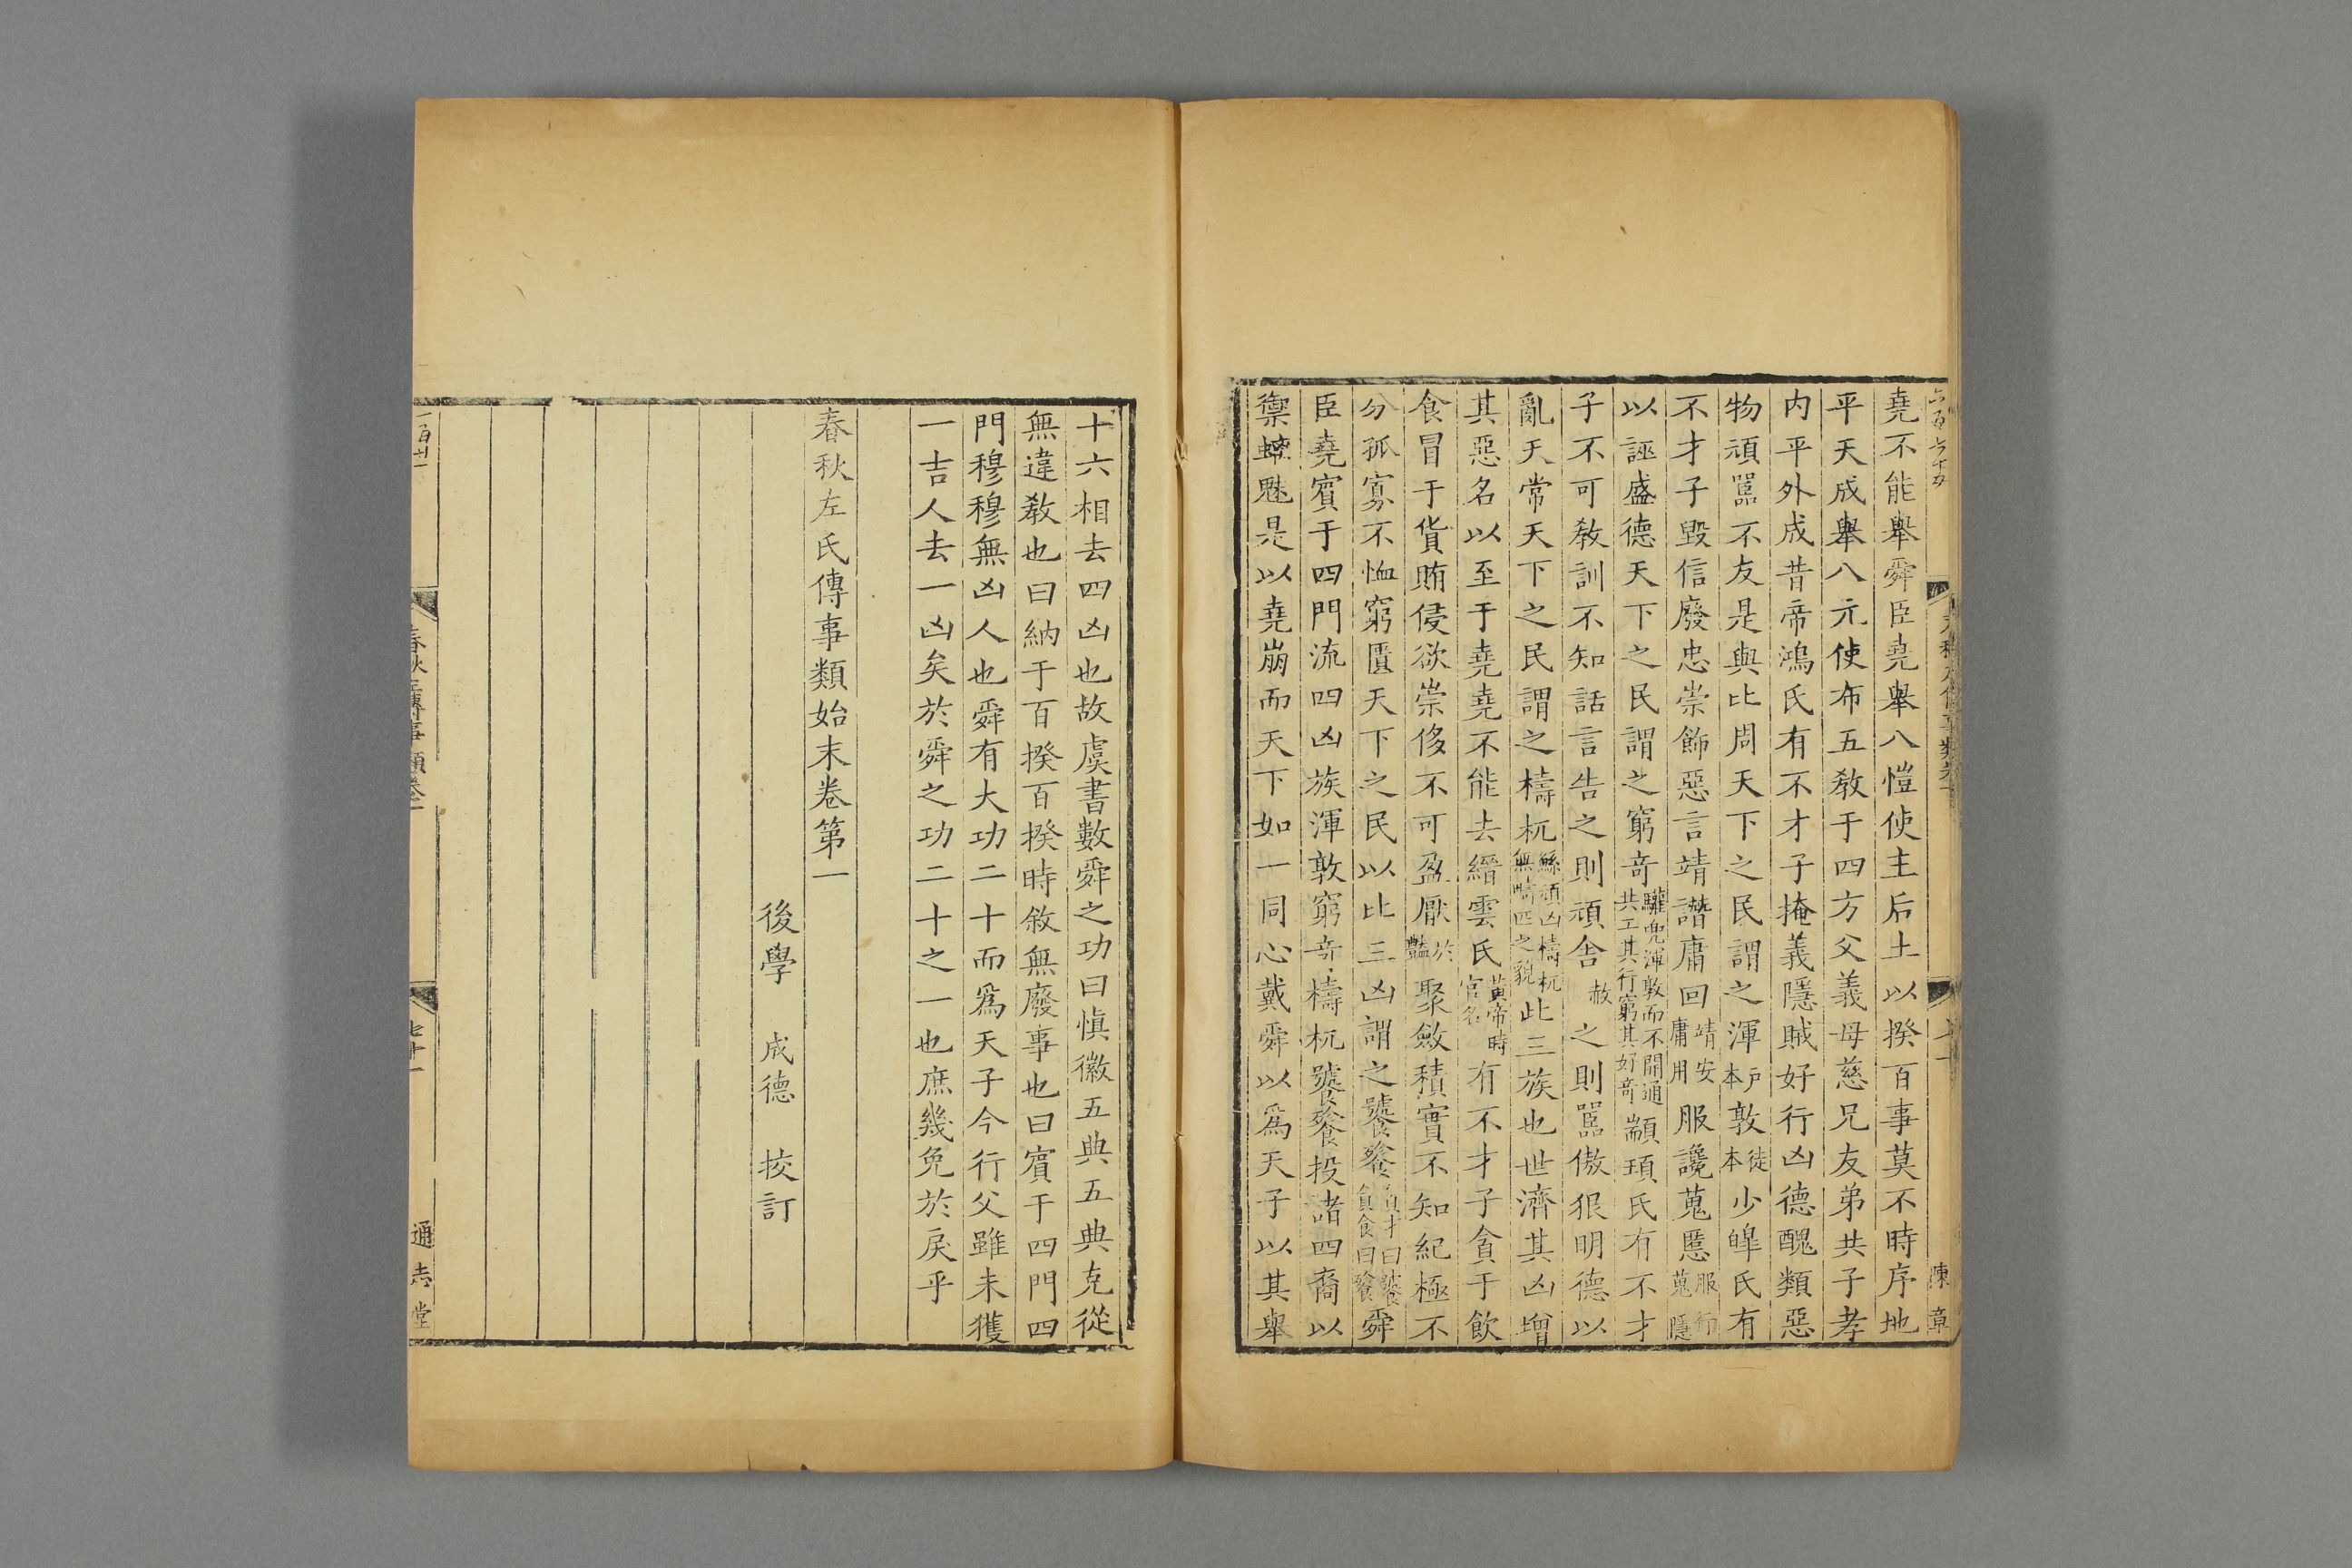 六百六十五
陳章
堯不能舉舜臣堯舉八愷使主后土以揆百事莫不時序地
平天成舉八元使布五敎于四方父義母慈兄友弟共子孝
内平外成昔帝鴻氏有不才子掩義隱賊好行凶德醜類惡
物頑嚚不友是與比周天下之民謂之渾戶本敦徒本少皥氏有
不才子毀信廢忠崇飾惡言靖譖庸回靖安庸用服讒蒐慝服行蒐隱
以誣盛德天下之民謂之窮奇驩兜渾敦而不開通共工其行窮其好奇顓頊氏有不才
子不可敎訓不知話言告之則頑舍赦之則嚚傲狠明德以
亂天常天下之民謂之檮杌鯀頑凶檮杌無疇匹之貌此三族也世濟其凶增
其惡名以至于堯堯不能去縉雲氏黃帝時官名有不才子貪于飮
食冒于貨賄侵欲崇侈不可盈厭於豔聚斂積實不知紀極不
分孤寡不恤窮匱天下之民以比三凶謂之饕餮貪才曰饕貪食曰餮舜
臣堯賓于四門流四凶族渾敦窮奇檮杌饕餮投諸四裔以
禦螭魅是以堯崩而天下如一同心戴舜以爲天子以其舉
十六相去四凶也故虞書數舜之功曰愼徽五典五典克從
無違敎也曰納于百揆百揆時敘無廢事也曰賓于四門四
門穆穆無凶人也舜有大功二十而爲天子今行父雖未獲
一吉人去一凶矣於舜之功二十之一也庶幾免於戾乎
春秋左氏傳事類始末卷第一
後學 成德 挍訂
一百廿一
春秋左傳事類卷一
七十一
通志堂